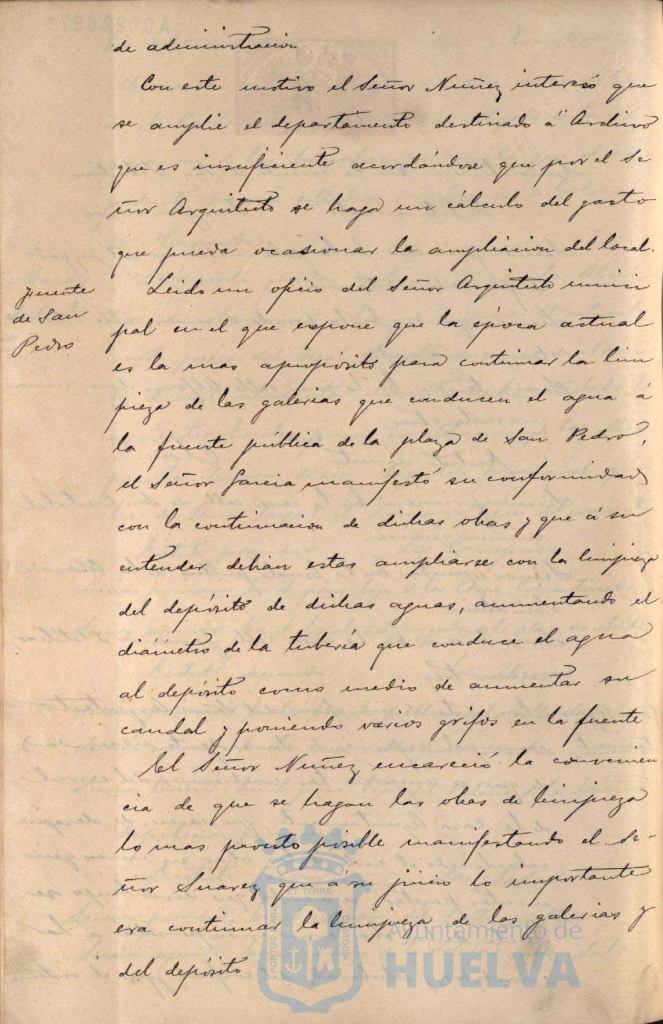 de administracion.
Con este motivo el Señor Nuñez interesó que
se amplie el departamento destinado á Archivo
que es insuficiente acordándose que por el Se-
ñor Arquitecto se haga un cálculo del gasto
que pueda ocasionar la ampliacion del local.
fuente
de San
Pedro
Leido un oficio del Señor Arquitecto munici
pal en el que expone que la época actual
es la mas apropósito para continuar la lim
pieza de las galerias que conducen el agua á
la fuente pública de la plaza de San Pedro,
el Señor Garcia manifestó su conformidad
con la continuacion de dichas obras y que á su
entender debian estas ampliarse con la limpieza
del depósito de dichas aguas, aumentando el
diámetro de la tubería que conduce el agua
al depósito como medio de aumentar su
caudal y poniendo varios grifos en la fuente
El Señor Nuñez encareció la convenien
cia de que se hagan las obras de limpieza
lo mas pronto posible manifestando el Se-
ñor Suarez que á su juicio lo importante
era continuar la limpieza de las galerias y
del depósito
Ayuntamiento de
HUELVA